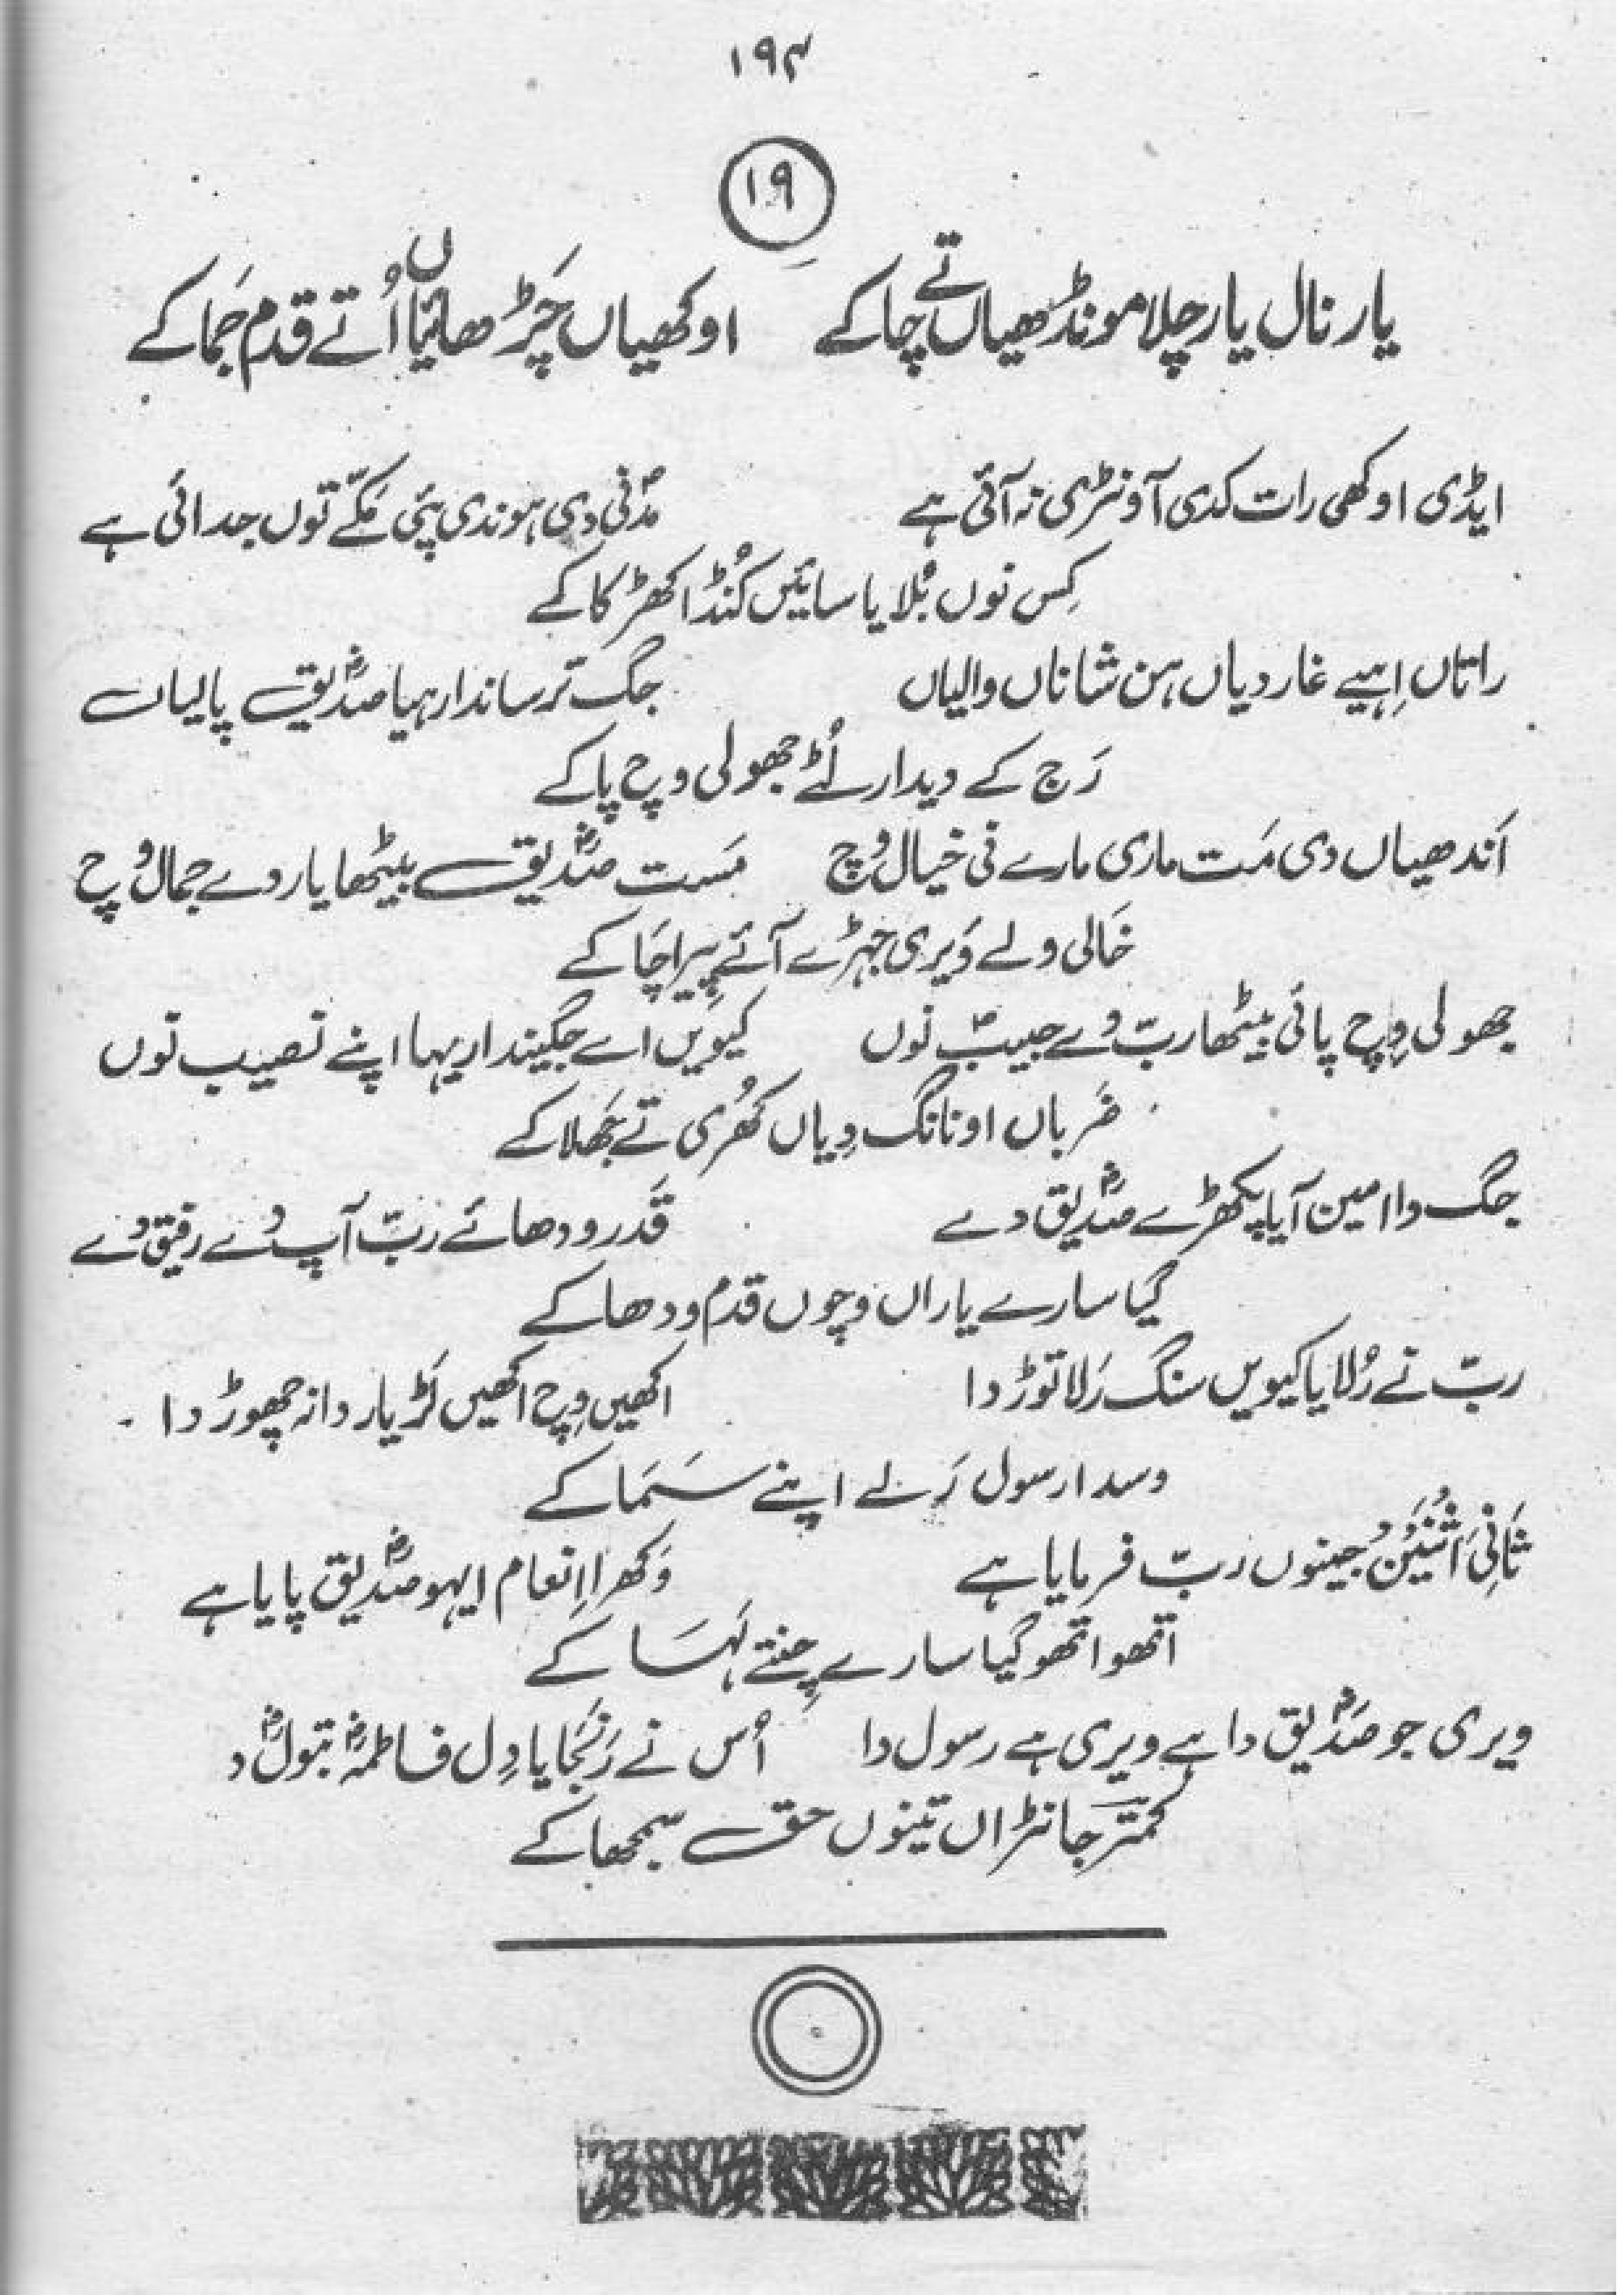 ۱۹۴
۱۹
یار نال یار چلا مونڈھیاں تے چاکے اوکھیاں چَڑھائیاں اُتے قدم جَماکے
ایڈی اوکھی رات کدی آونڑی نہ آئی ہے مدنی دی ہوندی پئی مکّے توں جدائی ہے
کِس نوں بُلایا سائیں کُنڈا کھڑکاکے
راتاں اِہیے غار دیاں ہن شاناں والیاں جگ ترساندا رہیا صدیقؓ پالیاں
رَج کے دیدار لُٹے جھولی وچ پاکے
اَندھیاں دی مَت ماری مارے نی خیال وچ مَست صدیقؓ بیٹھا یار دے جمال وچ
خَالی ولے وَیری جہڑے آئے پیرا چَاکے
جھولی وِچ پائی بیٹھا ربّ دے حبیبؐ نوں کیویں اے جگیندا رہیا اپنے نصیب نوں
ضَرباں او نانگ دِیاں کھُری تے جَھلاکے
جگ دا امین آیا پکھڑے صدیقؓ دے قَدر ودھائے ربّ آپ دے رفیق دے
گیا سارے یاراں وچوں قدم ودھاکے
ربّ نے رُلایا کیویں سنگ رَلا توڑ دا اکھیں وِچ اکھیں لَڑ یار دا نہ چھوڑ دا
وسدا رسول رَلے اپنے سَمَاکے
ثَانِیَ اثْنَیْنِ جینوں ربّ فرمایا ہے وَکھرا اِنعام ایہو صدیقؓ پایا ہے
اتھو اتھو گیا سارے جِتنے لَہسَاکے
ویری جو صدیقؓ دا ہے ویری ہے رسول دا اُس نے رَنجَایا دِل فاطمہؓ بتولؓ د
کمترؔ جانڑاں تینوں حق سمجھاکے